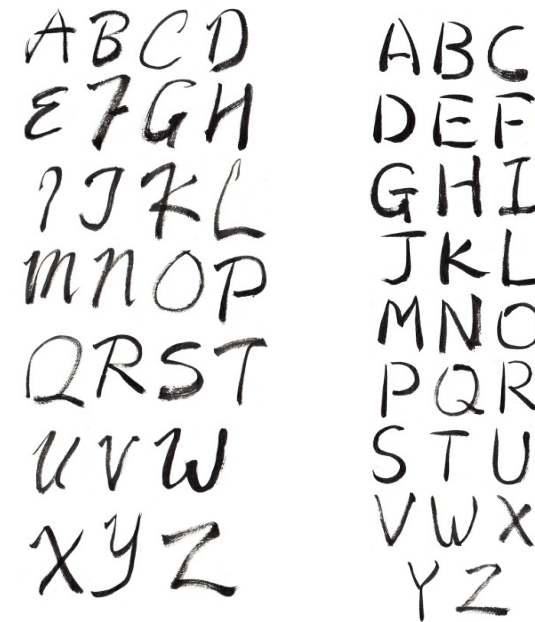 ABCD
EFGH
IJKL
MNOP
QRST
UVW
XYZ
ABC
DEF
GHI
JKL
MNO
PQR
STU
VWX
YZ